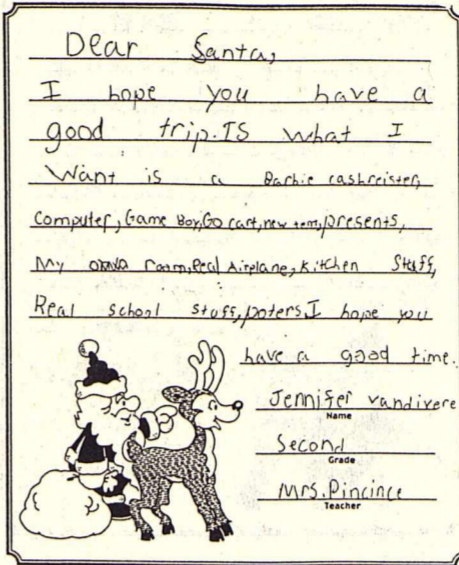 Dear Santa,
I hope you have a
good trip. IS what I
Want is a Barbie cashreister,
Computer, Game Boy, Go cart, new tem, presents,
My own room, Real Airplane, Kitchen Stuff,
Real school stuff, poters. I hope you
have a good time.
Jennifer vandivere
Name
Second
Grade
Mrs. Pincince
Teacher